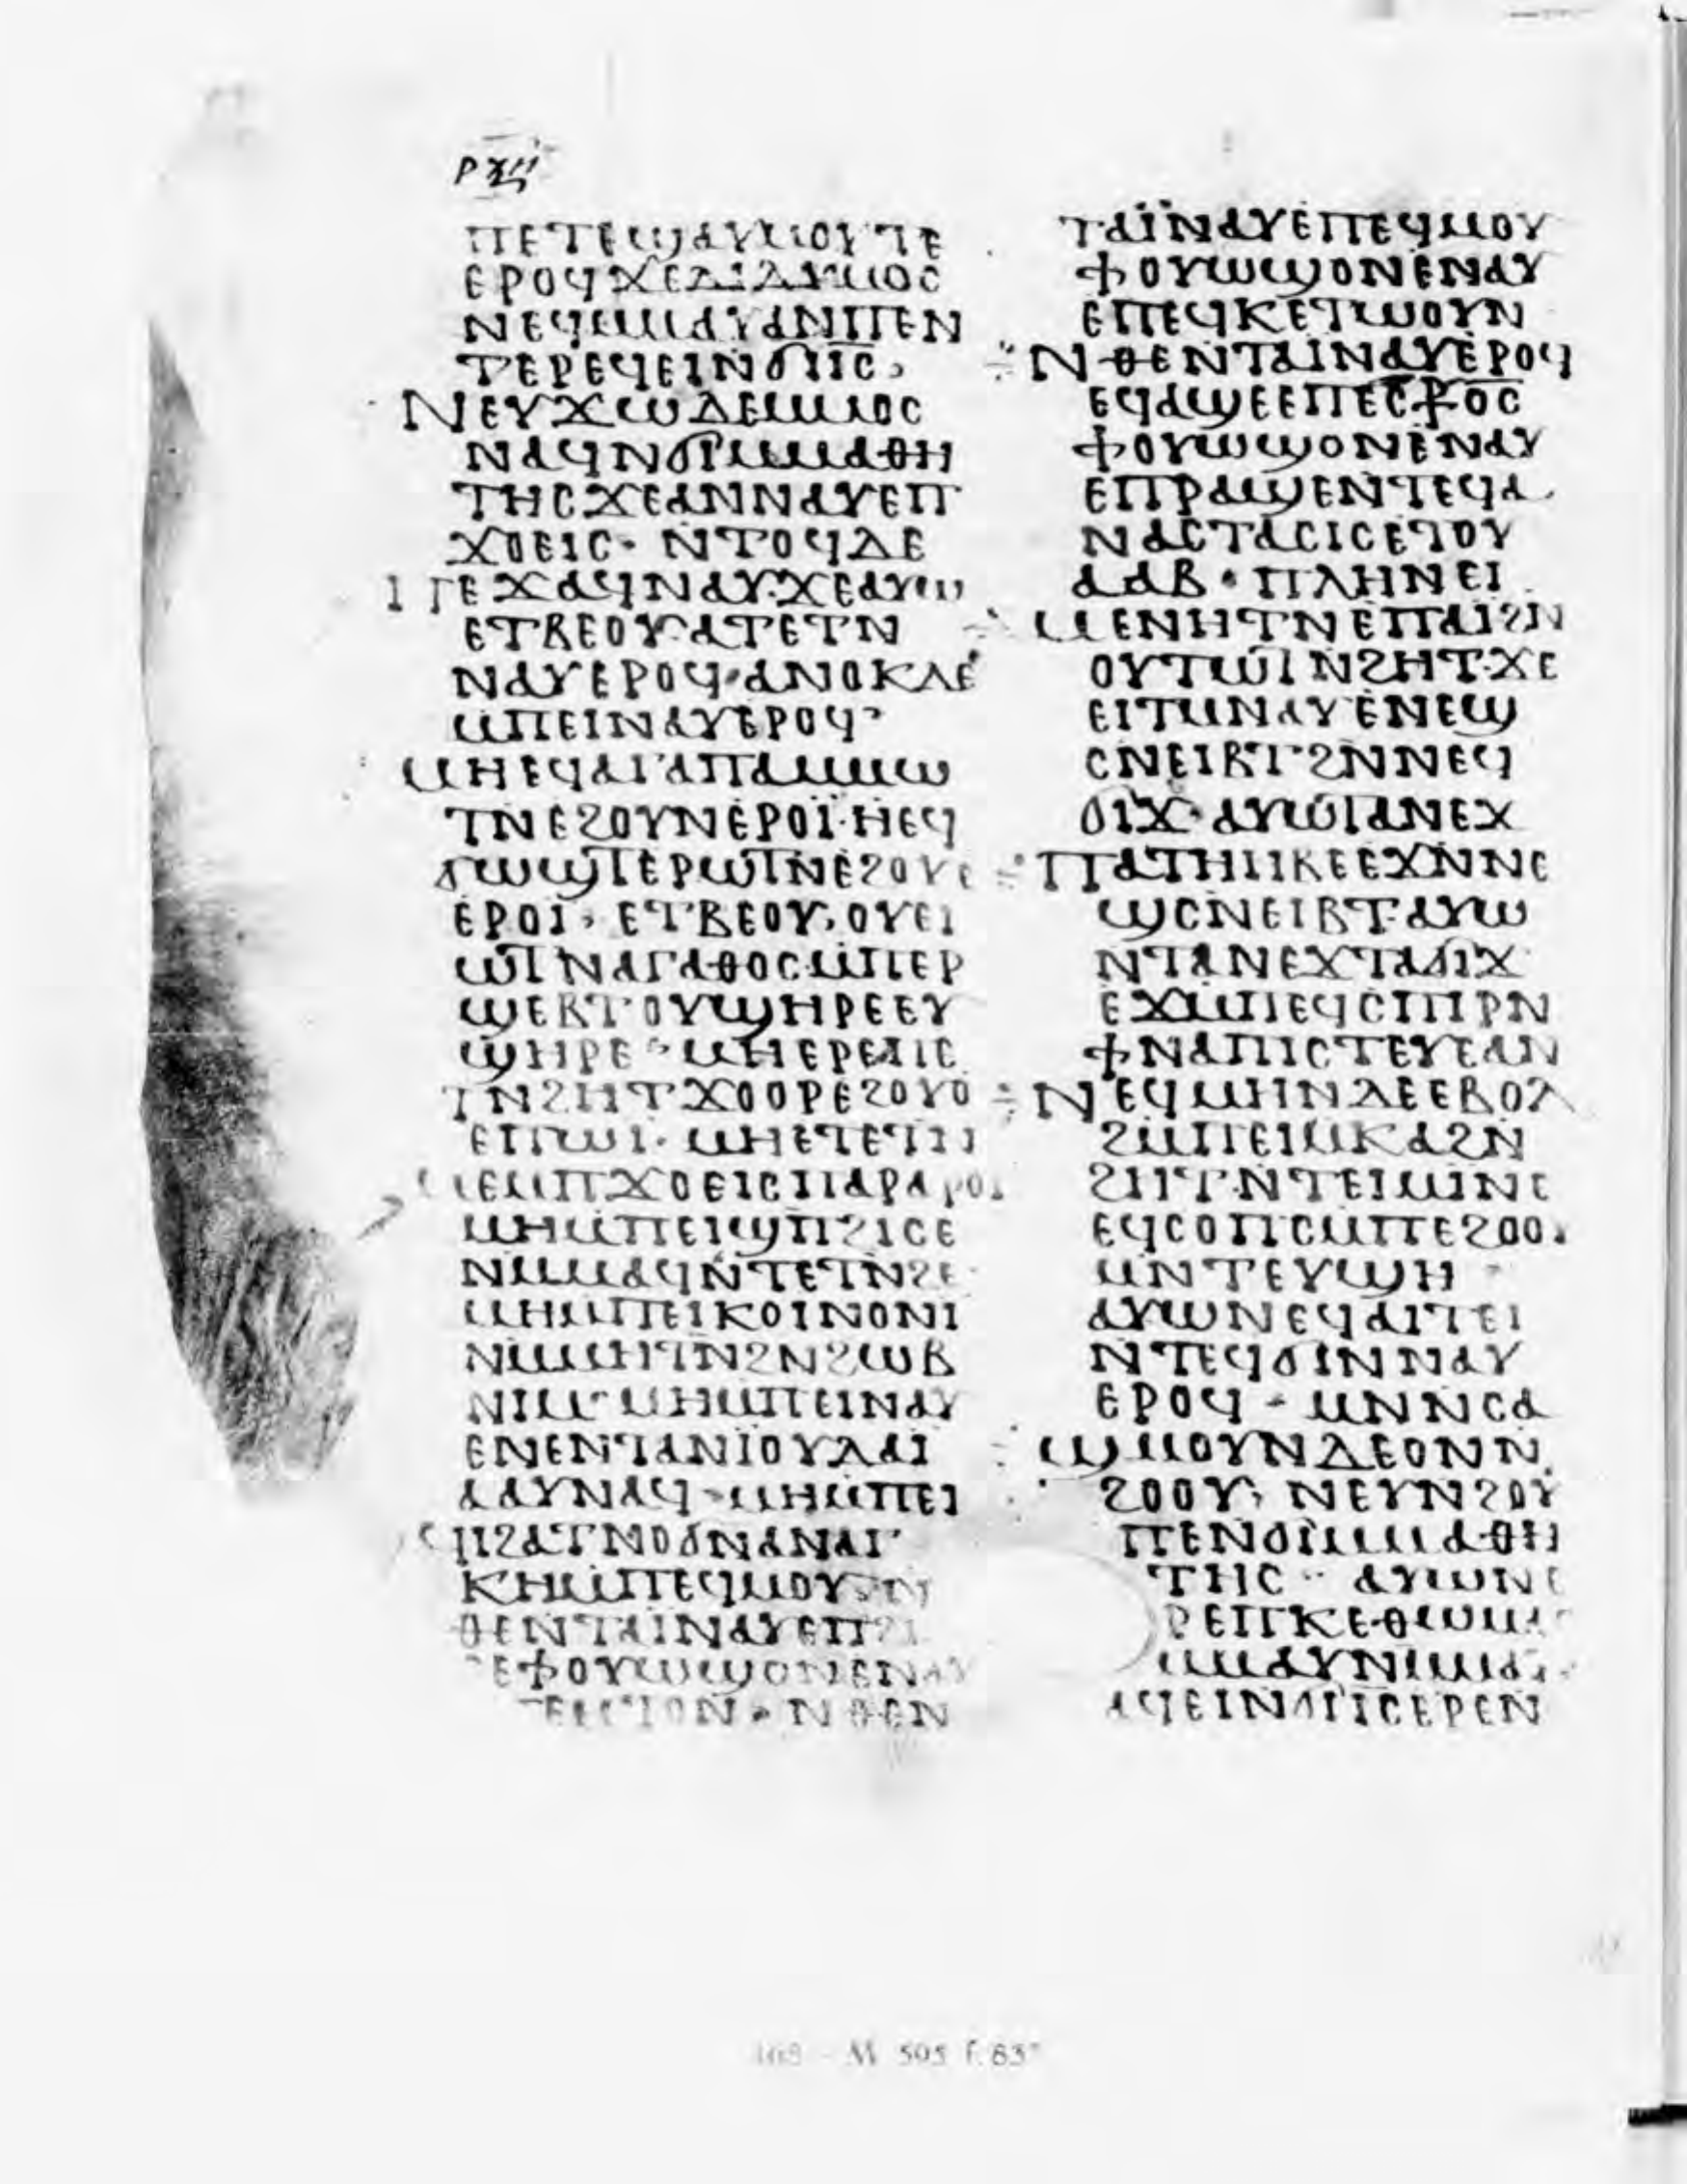 ⲡⲉⲧⲉϣⲁⲩⲙⲟⲩⲧⲉ
ⲉⲣⲟϥϫⲉⲇⲓⲇⲩⲙⲟⲥ
ⲛⲉϥⲙⲙⲁⲩⲁⲛⲡⲉⲛ
ⲧⲉⲣⲉϥⲉⲓⲛϭⲓⲓ̅ⲥ̅
ⲛⲉⲩϫⲱⲇⲉⲙⲙⲟⲥ
ⲛⲁϥⲛϭⲓⲙⲙⲁⲑⲏ
ⲧⲏⲥϫⲉⲁⲛⲛⲁⲩⲉⲡ
ϫⲟⲉⲓⲥ· ⲛⲧⲟϥⲇⲉ
ⲡⲉϫⲁϥⲛⲁⲩ·ϫⲉⲁⲩⲱ
ⲉⲧⲃⲉⲟⲩⲁⲧⲉⲧⲛ
ⲛⲁⲩⲉⲣⲟϥ·ⲁⲛⲟⲕⲇⲉ
ⲙⲡⲉⲓⲛⲁⲩⲉⲣⲟϥ·
ⲙⲏⲉϥⲁⲅⲁⲡⲁⲙⲙⲱ
ⲧⲛⲉϩⲟⲩⲛⲉⲣⲟⲓ̈·ⲏⲉϥ
ϭⲱϣⲧⲉⲣⲱⲧⲛⲉϩⲟⲩⲉ
ⲉⲣⲟⲓ· ⲉⲧⲃⲉⲟⲩ·ⲟⲩⲉⲓ
ⲱⲧⲛⲁⲅⲁⲑⲟⲥⲙⲡⲉⲣ
ϣⲉⲃⲧⲟⲩϣⲏⲣⲉⲉⲩ
ϣⲏⲣⲉ· ⲙⲏⲉⲣⲉⲡⲉ
ⲧⲛϩⲏⲧϫⲟⲟⲣⲉϩⲟⲩⲟ
ⲉⲡⲱⲓ· ⲙⲏⲉⲧⲉⲧⲛ
ⲙⲉⲙⲡϫⲟⲉⲓⲥⲡⲁⲣⲁⲣⲟⲓ
ⲙⲏⲙⲡⲉⲓϣⲡϩⲓⲥⲉ
ⲛⲙⲙⲁϥⲛⲧⲉⲧⲛϩⲉ
ⲙⲏⲙⲡⲉⲓⲕⲟⲓⲛⲟⲛⲓ
ⲛⲙⲙⲏⲧⲛϩⲛϩⲱⲃ
ⲛⲓⲙ· ⲙⲏⲙⲡⲉⲓⲛⲁⲩ
ⲉⲛⲉⲛⲧⲁⲛⲓⲟⲩⲇⲁⲓ
ⲁⲁⲩⲛⲁϥ·ⲙⲏⲙⲡⲉⲓ
ϥⲡϩⲁⲧⲛⲟϭⲛⲁⲛⲁⲅ
ⲕⲏⲙⲡⲉϥⲙⲟⲩ·ⲛ
ⲑⲉⲛⲧⲁⲓⲛⲁⲩⲉⲡϩⲓ
ⲥⲉϯⲟⲩⲱϣⲟⲛⲉⲛⲁⲩ
ⲛⲑⲉⲛ
ⲧⲁⲓ̈ⲛⲁⲩⲉⲡⲉϥⲙⲟⲩ
ϯⲟⲩⲱϣⲟⲛⲉⲛⲁⲩ
ⲉⲡⲉϥⲕⲉⲧⲱⲟⲩⲛ
ⲛⲑⲉⲛⲧⲁⲓⲛⲁⲩⲉⲣⲟϥ
ⲉϥⲁϣⲉⲉⲡⲉⲥ⳨ⲟⲥ
ϯⲟⲩⲱϣⲟⲛⲉⲛⲁⲩ
ⲉⲡⲣⲁϣⲉⲛⲧⲉϥⲁ
ⲛⲁⲥⲧⲁⲥⲓⲥⲉⲧⲟⲩ
ⲁⲁⲃ· ⲡⲗⲏⲛⲉⲓ
ⲙⲉⲛⲏⲧⲛⲉⲡⲁⲓϩⲛ
ⲟⲩⲧⲱⲧⲛϩⲏⲧ·ϫⲉ
ⲉⲓⲧⲙⲛⲁⲩⲉⲛⲉϣ
ⲥⲛⲉⲓⲃⲧϩⲛⲛⲉϥ
ϭⲓϫ·ⲁⲩⲱⲧⲁⲛⲉϫ
ⲡⲁⲧⲏⲏⲃⲉⲉϫⲛⲛⲉ
ϣⲥⲛⲉⲓⲃⲧ·ⲁⲩⲱ
ⲛⲧⲁⲛⲉϫⲧⲁϭⲓϫ
ⲉϫⲙⲡⲉϥⲥⲡⲓⲣⲛ
ϯⲛⲁⲡⲓⲥⲧⲉⲩⲉⲁⲛ
ⲛⲉϥⲙⲏⲛⲇⲉⲉⲃⲟⲗ
ϩⲙⲡⲉⲓⲙⲕⲁϩⲛ
ϩⲏⲧ·ⲛⲧⲉⲓⲙⲓⲛⲉ
ⲉϥⲥⲟⲡⲥⲙⲡⲉϩⲟⲟⲩ
ⲙⲛⲧⲉⲩϣⲏ
ⲁⲩⲱⲛⲉϥⲁⲓⲧⲉⲓ
ⲛⲧⲉϥϭⲓⲛⲛⲁⲩ
ⲉⲣⲟϥ· ⲙⲛⲛⲥⲁ
ϣⲙⲟⲩⲛⲇⲉⲟⲛⲛ
ϩⲟⲟⲩ· ⲛⲉⲩⲛϩⲟⲩ
ⲡⲉⲛϭⲓⲙⲙⲁⲑⲏ
ⲧⲏⲥ·· ⲁⲩⲱⲛⲉ
ⲣⲉⲡⲕⲉⲑⲱⲙⲁⲥ
ⲙⲙⲁⲩⲛⲙⲙⲁⲩ
ⲁϥⲉⲓⲛϭⲓⲓⲥⲉⲣⲉⲛ
M 595 f. 83